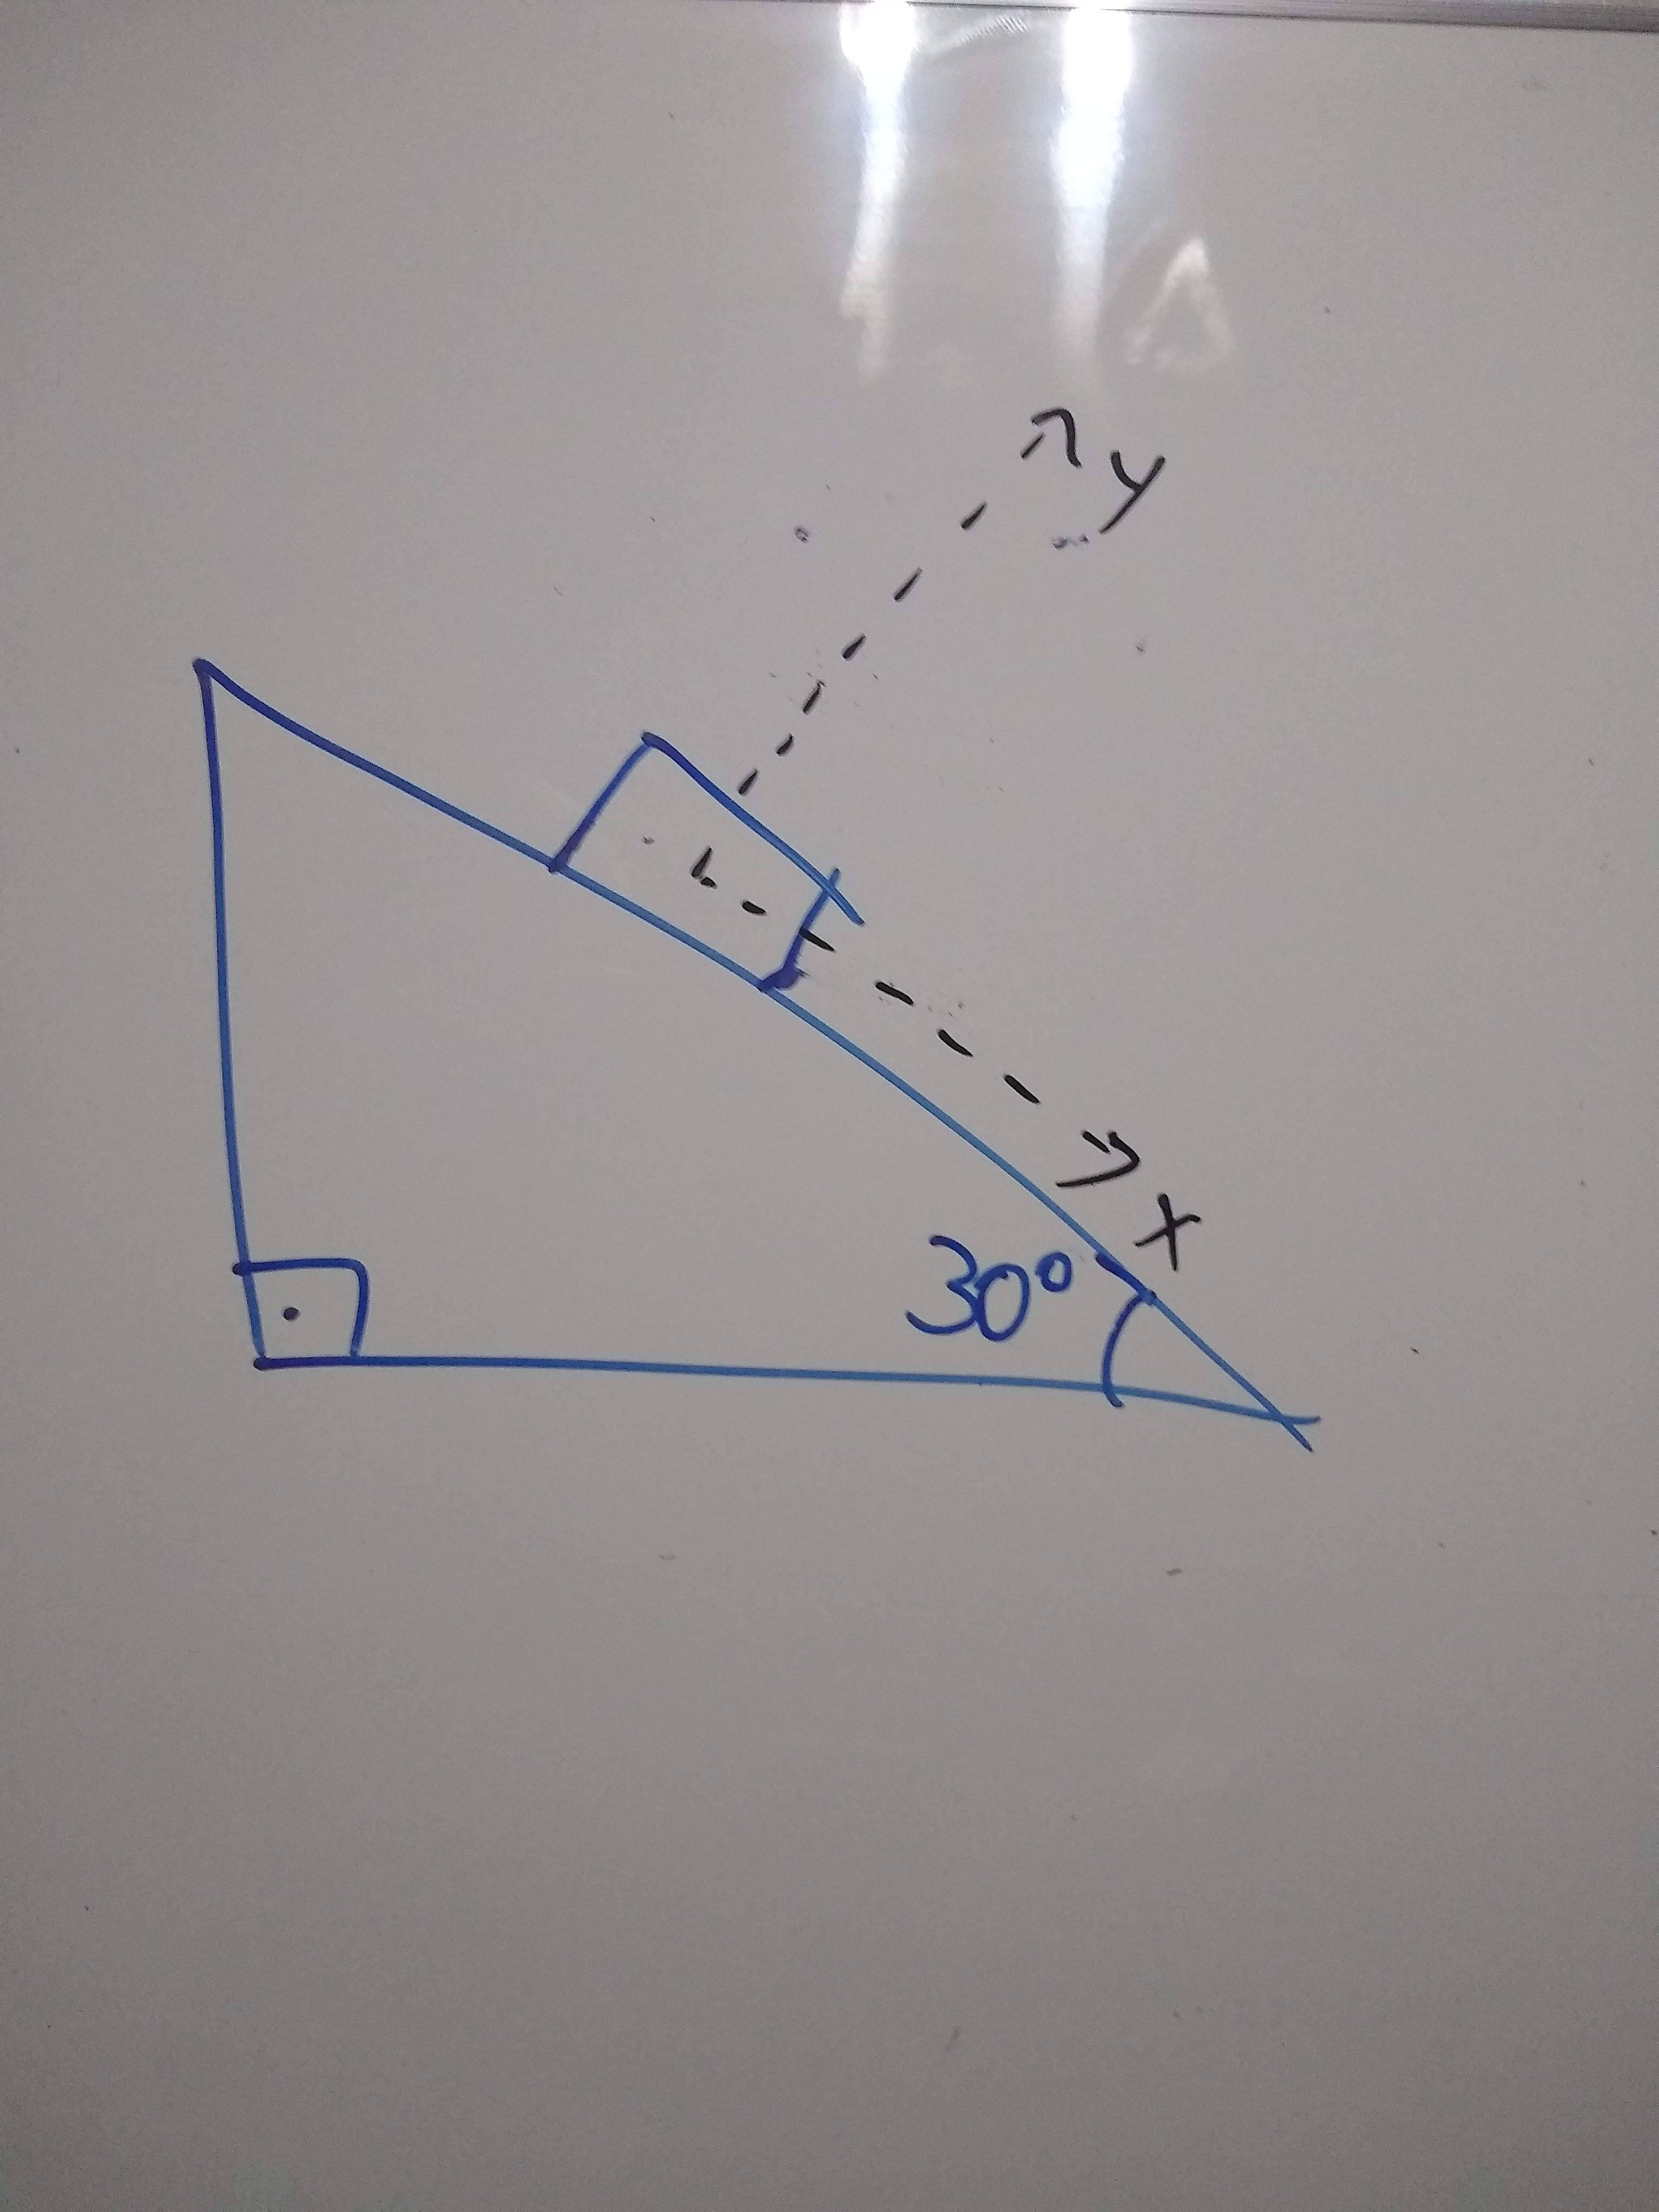 y
x
30°